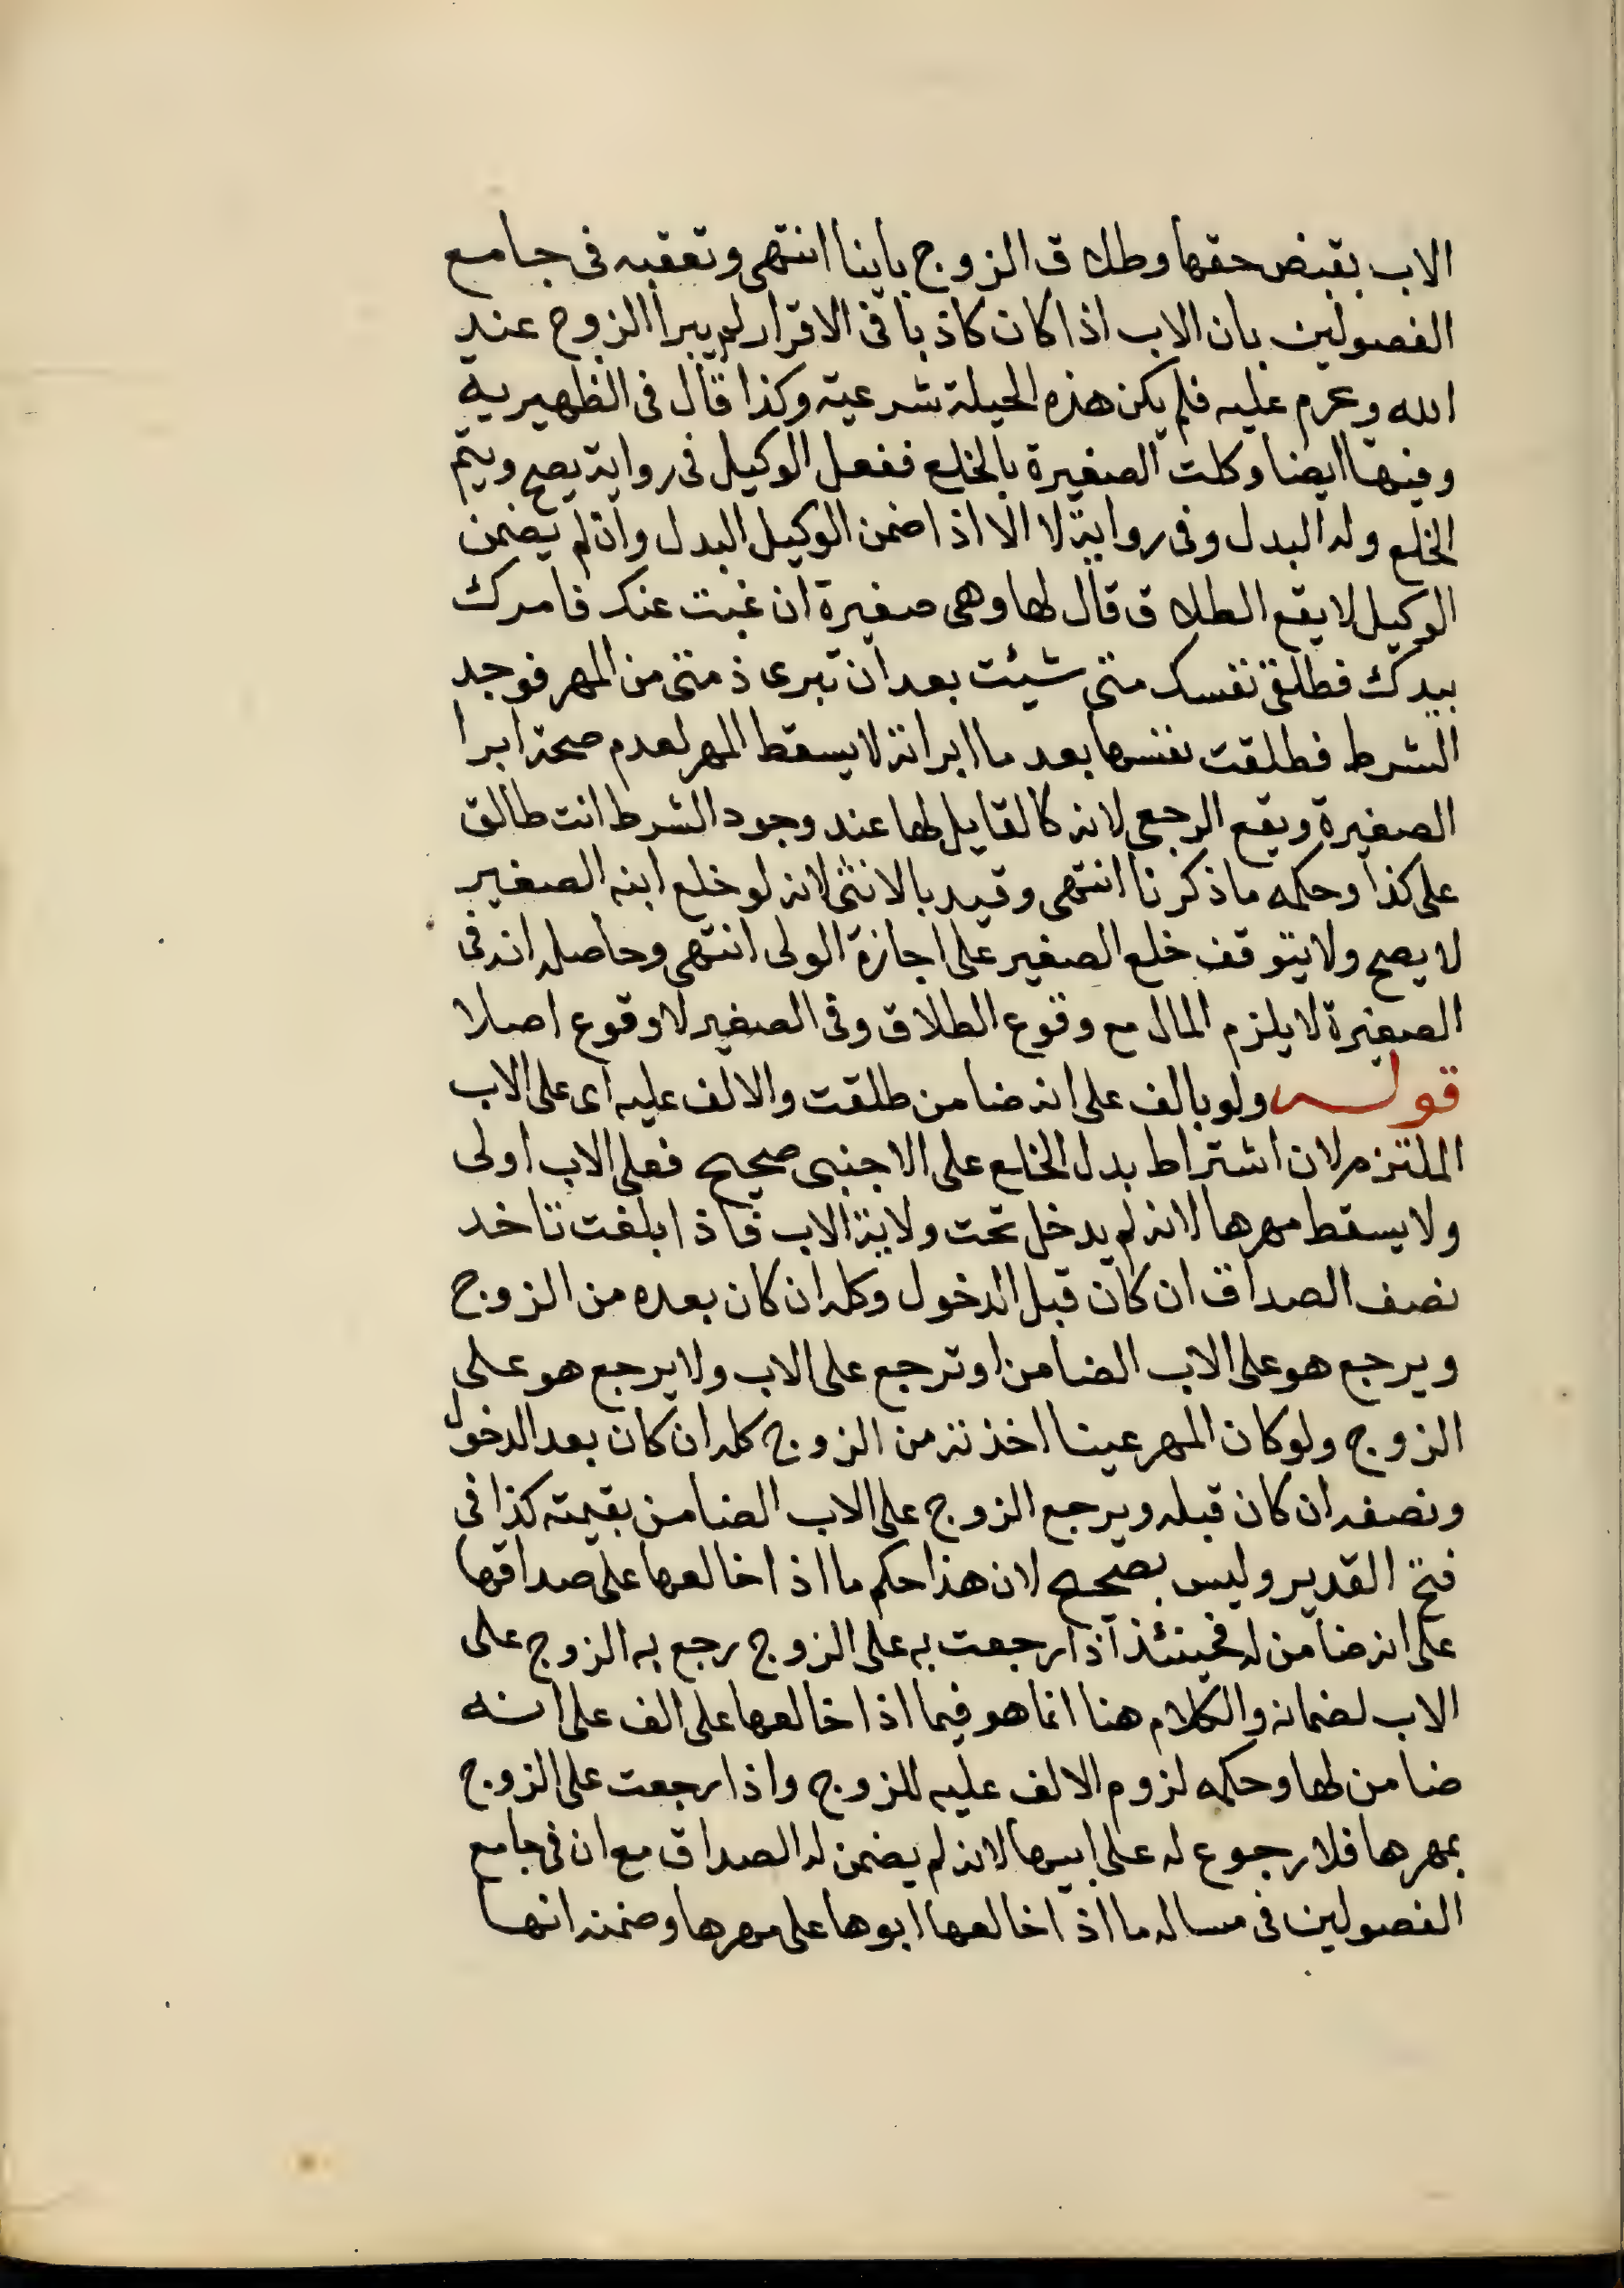 الاب بقبض حقها وطلاق الزوج باينا انتهى وتعقبه فى جامع
الفصولين بان الاب اذا كان كاذبا فى الاقرار لم يبرا الزوج عند
الله وحرم عليه فلم يكن هذه الحيلة شرعية وكذا قال فى الظهيرية
وفيها ايضا وكلت الصغيرة بالخلع ففعل الوكيل فى رواية يصح ويتم
الخلع وله البدل وفى رواية لا الا اذا ضمن الوكيل البدل وان لم يضمن
الوكيل لا يقع الطلاق قال لها وهى صغيرة ان غبت عنك فامرك
بيدك فطلقى نفسك متى شيئت بعد ان تبرى ذمتى من المهر فوجد
الشرط فطلقت نفسها بعد ما ابراته لا يسقط المهر لعدم صحة ابرا
الصغيرة ويقع الرجعى لانه كالقايل لها عند وجود الشرط انت طالق
على كذا وحكمه ما ذكرنا انتهى وقيد بالانثى لانه لو خلع ابنه الصغير
لا يصح ولا يتوقف خلع الصغير على اجازة الولى انتهى وحاصله انه فى
الصغيرة لا يلزم المال مع وقوع الطلاق وفى الصغير لا وقوع اصلا
قوله ولو بالف على انه ضامن طلقت والالف عليه اى على الاب
الملتزم لان اشتراط بدل الخلع على الاجنبى صحيح فعلى الاب اولى
ولا يسقط مهرها لانه لم يدخل تحت ولاية الاب فاذا بلغت تاخد
نصف الصداق ان كان قبل الدخول وكله ان كان بعده من الزوج
ويرجع هو على الاب الضامن او ترجع على الاب ولا يرجع هو على
الزوج ولو كان المهر عينا اخذته من الزوج كله ان كان بعد الدخول
ونصفه ان كان قبله ويرجع الزوج على الاب الضامن بقيمته كذا فى
فتح القدير وليس بصحيح لان هذا حكم ما اذا خالعها على صداقها
على انه ضامن له فحينئذ اذا رجعت به على الزوج رجع به الزوج على
الاب لضمانه والكلام هنا انما هو فيما اذا خالعها على الف على انه
ضامن لها وحكمه لزوم الالف عليه للزوج واذا رجعت على الزوج
بمهرها فلا رجوع له على ابيها لانه لم يضمن له الصداق مع ان فى جامع
الفصولين فى مساله ما اذا خالعها ابوها على مهرها وضمنه انها